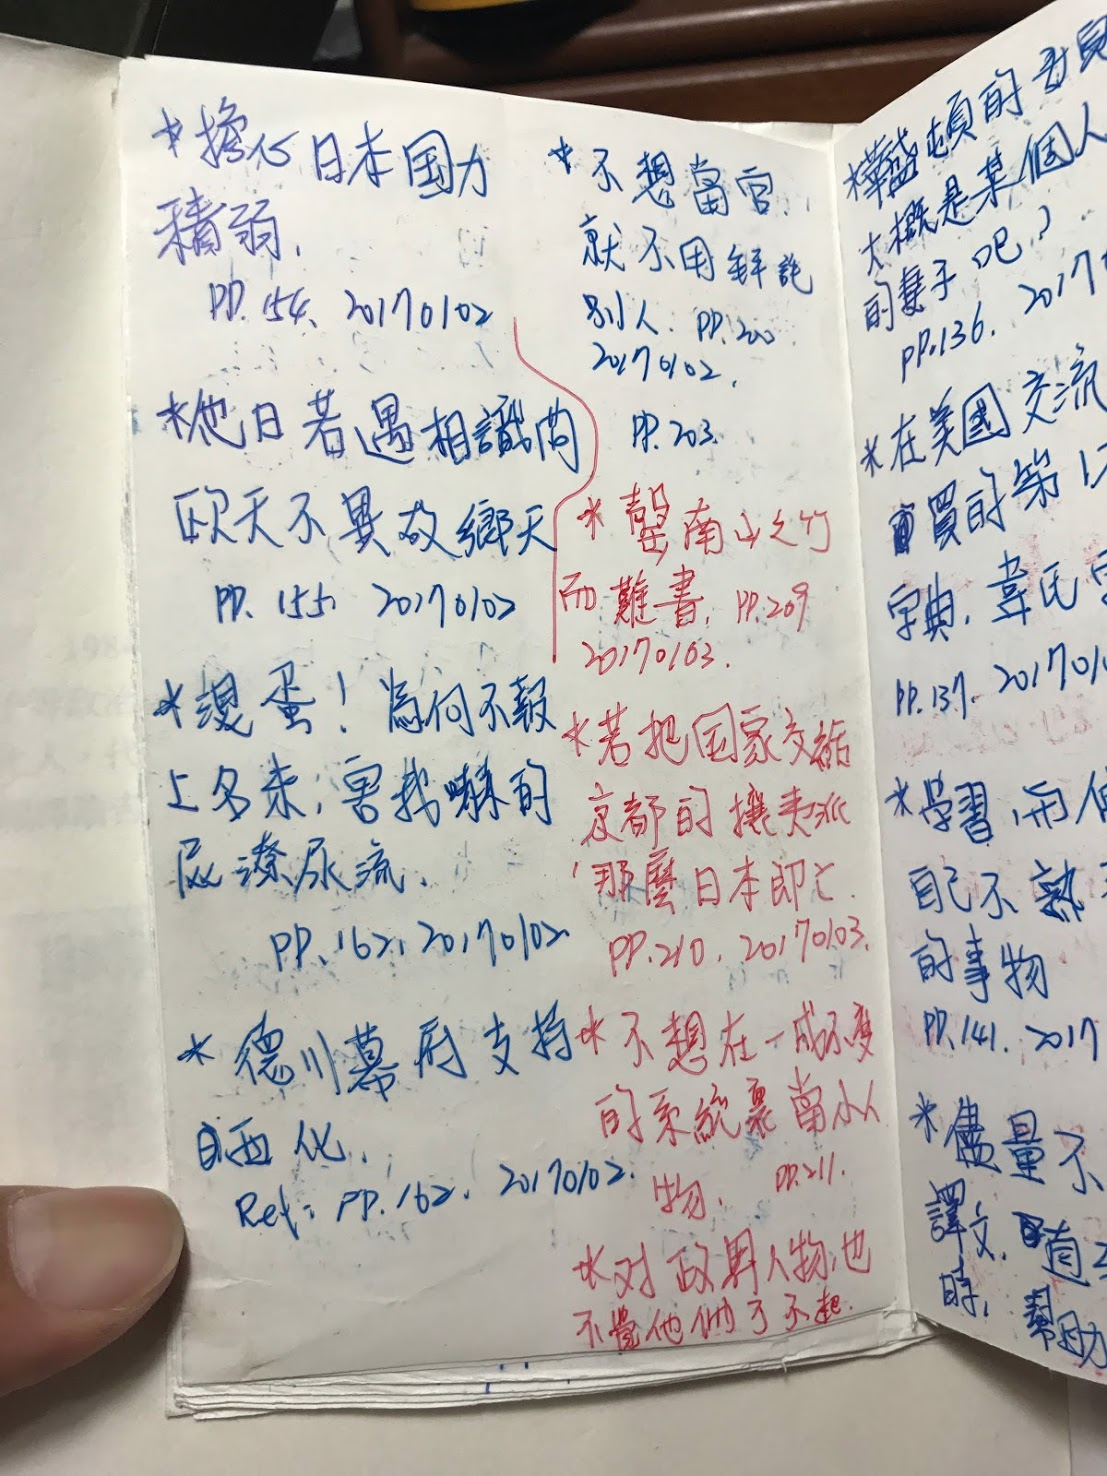 *擔心日本国力
積弱.
PP.154, 20170102
*他日若遇相識問
欧天不異故鄉天
PP. 155, 20170102
*混蛋!為何不報
上名来,害我嚇的
屁滾尿流.
PP.162, 20170102
*德川幕府支持
西化.
Ref: PP.162. 20170102.
*不想當官
就不用拜託
別人. PP.200
20170102.
PP.203.
*罄南山之竹
而難書. PP.209
20170103.
*若把国家交給
京都的攘夷派
那麼日本即亡.
PP.210. 20170103.
*不想在一成不變
的系統裏當小人
物. PP.211.
*对政界人物,也
不覺他們了不起.
*華盛頓的
大概是某個人
的妻子吧?
PP.136. 2017
*在美國交流
買的第
字典,韋氏字
PP.137. 201701
*學習,而
自己不熟
的事物
PP.141. 2017
*儘量不
譯文.
時,
幫助